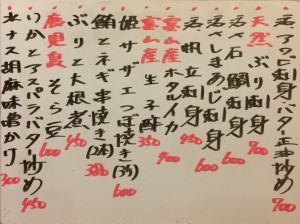 活アワビ刺身バター正油炒め 900
天然ぶり刺身 700
活〆石鯛刺身 600
活〆しまあじ刺身 600
活帆立刺身 450
富山産ホタルイカ 400
富山産生子酢 350
姫サザエつぼ焼き(3ケ) 600
鮪とネギ串焼き(2本) 380
ぶりと大根煮 450
鹿児島そら豆 600
いかとアスパラバター炒め 450
水ナス胡麻味噌かけ 300